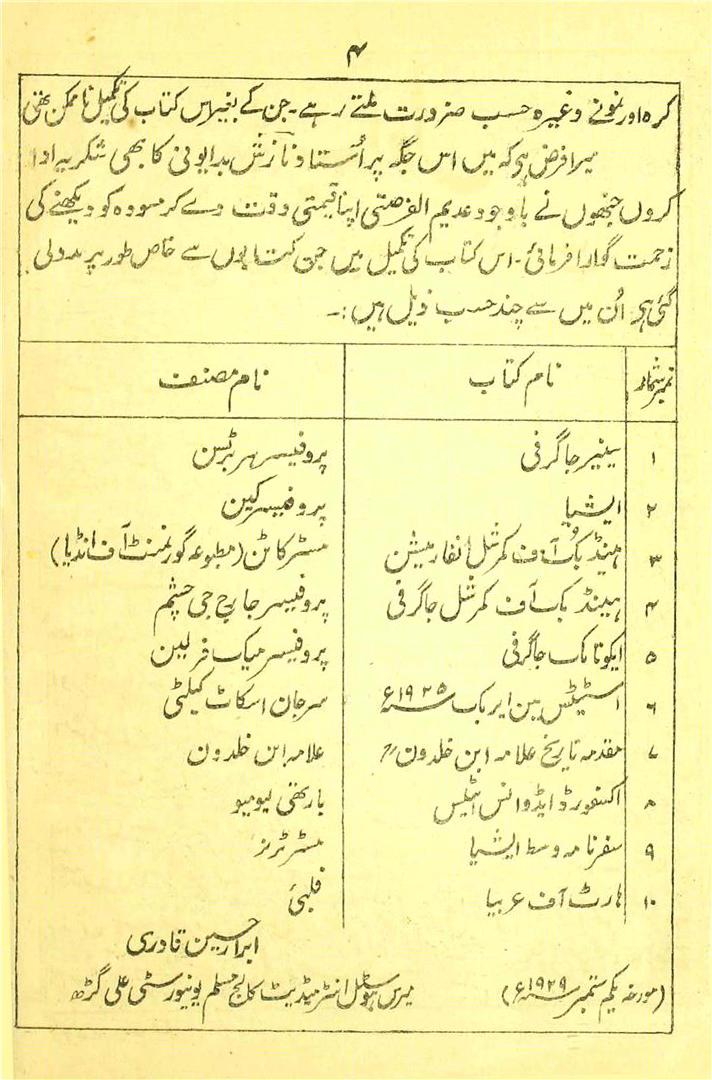 ۴
کرہ اور نمونے وغیرہ حسب ضرورت ملتے رہے۔ جن کے بغیر اس کتاب کی تکمیل ناممکن تھی
میرا فرض ہی کہ میں اس جگہ پر اُستاد نازش بدایونی کا بھی شکریہ ادا
کروں جنھوں نے باوجود عدیم الفرصتی اپنا قیمتی وقت دے کر مسودہ کو دیکھنے کی
زحمت گوارا فرمائی۔ اس کتاب کی تکمیل میں جن کتابوں سے خاص طور پر مدد لی
گئی ہی اُن میں سے چند حسب ذیل ہیں:۔
نمبر شمار نام کتاب نام مصنف
۱ سینیر جاگرفی پروفیسر ہربرٹسن
۲ ایشیا پروفیسر کین
۳ ہینڈ بک آف کمرشل انفارمیشن مسٹر کاٹن (مطبوعہ گورنمنٹ آف انڈیا)
۴ ہینڈ بک آف کمرشل جاگرفی پروفیسر جارج جی چشم
۵ ایکونامک جاگرفی پروفیسر میک فرلین
۶ اسٹیٹس مین ایر بک سنہ ۱۹۲۵ء سرجان اسکاٹ کیلٹی
۷ مقدمہ تاریخ علامہ ابن خلدون علامہ ابن خلدون
۸ اکسفورڈ ایڈوانس اٹلس بارتھی لیومیو
۹ سفرنامہ وسط ایشیا مسٹر ٹرنر
۱۰ ہارٹ آف عربیا فلبی
ابرار حسین قادری
(مورخہ یکم ستمبر سنہ ۱۹۲۹ء) میرس ہوسٹل انٹرمیڈیٹ کالج مسلم یونیورسٹی علی گڑھ